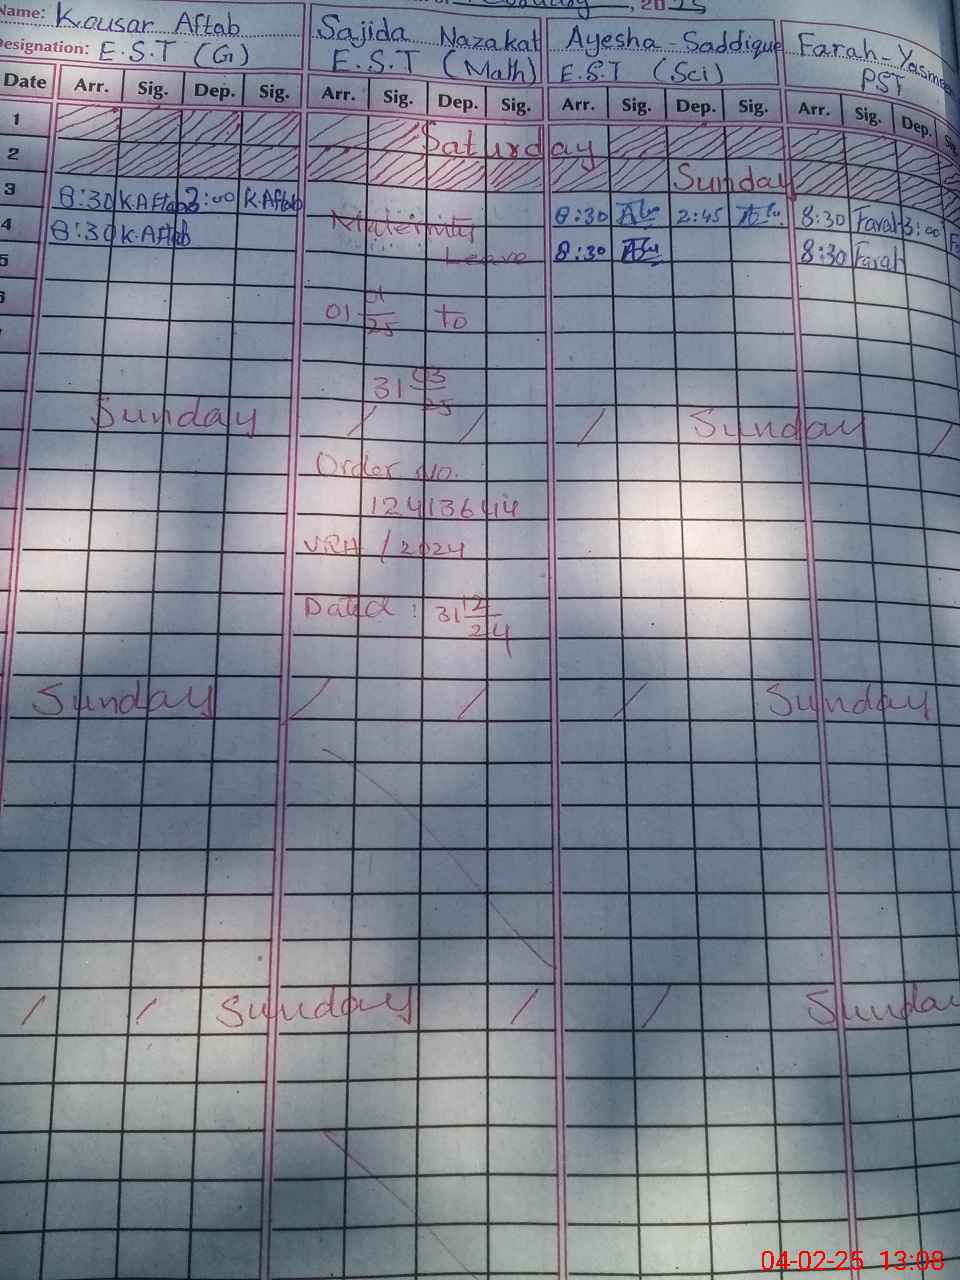 February, 2025
Name: Kousar Aftab Sajida Nazakat Ayesha-Saddique Farah-Yasmeen
Designation: E.S.T (G) E.S.T (Math) E.S.T (Sci) PST
Date Arr. Sig. Dep. Sig. Arr. Sig. Dep. Sig. Arr. Sig. Dep. Sig. Arr. Sig. Dep.
1 Saturday
2 Sunday
3 8:30 K.Aftab 3:00 K.Aftab Maternity 8:30 2:45 8:30 Farah 3:00
4 8:30 K.Aftab Leave 8:30 8:30 Farah
5
6 01 01/25 to
31 03/25
Sunday / / / Sunday /
Order No.
12413644
VRH / 2024
Dated : 31 12/24
Sunday / / / Sunday
/ / Sunday / / Sunda
04-02-25 13:08